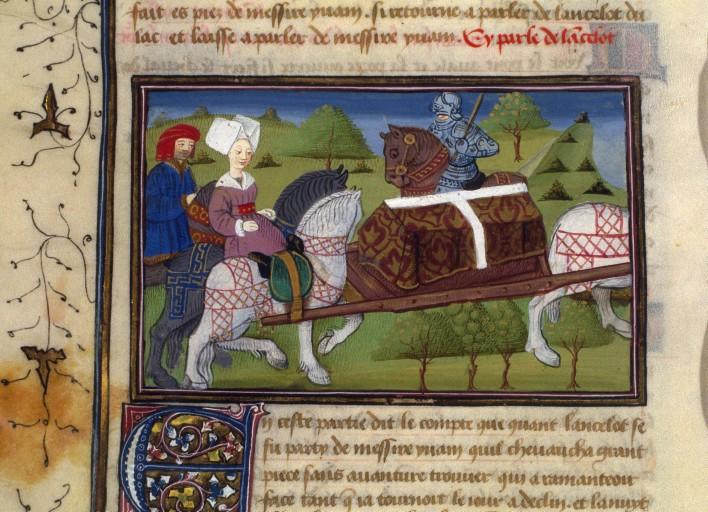 fait es piez de messire yuain. si retourne a parler de lancelot du
lac et laisse a parler de messire yuain. Cy parle de lancelot
En ceste partie dit le compte que quant lancelot se
fu party de messire yuain quil cheuaucha grant
piece sans auanture trouuer qui a ramanteuoir
face tant q ia tournoit le iour a declin. et la nuyt